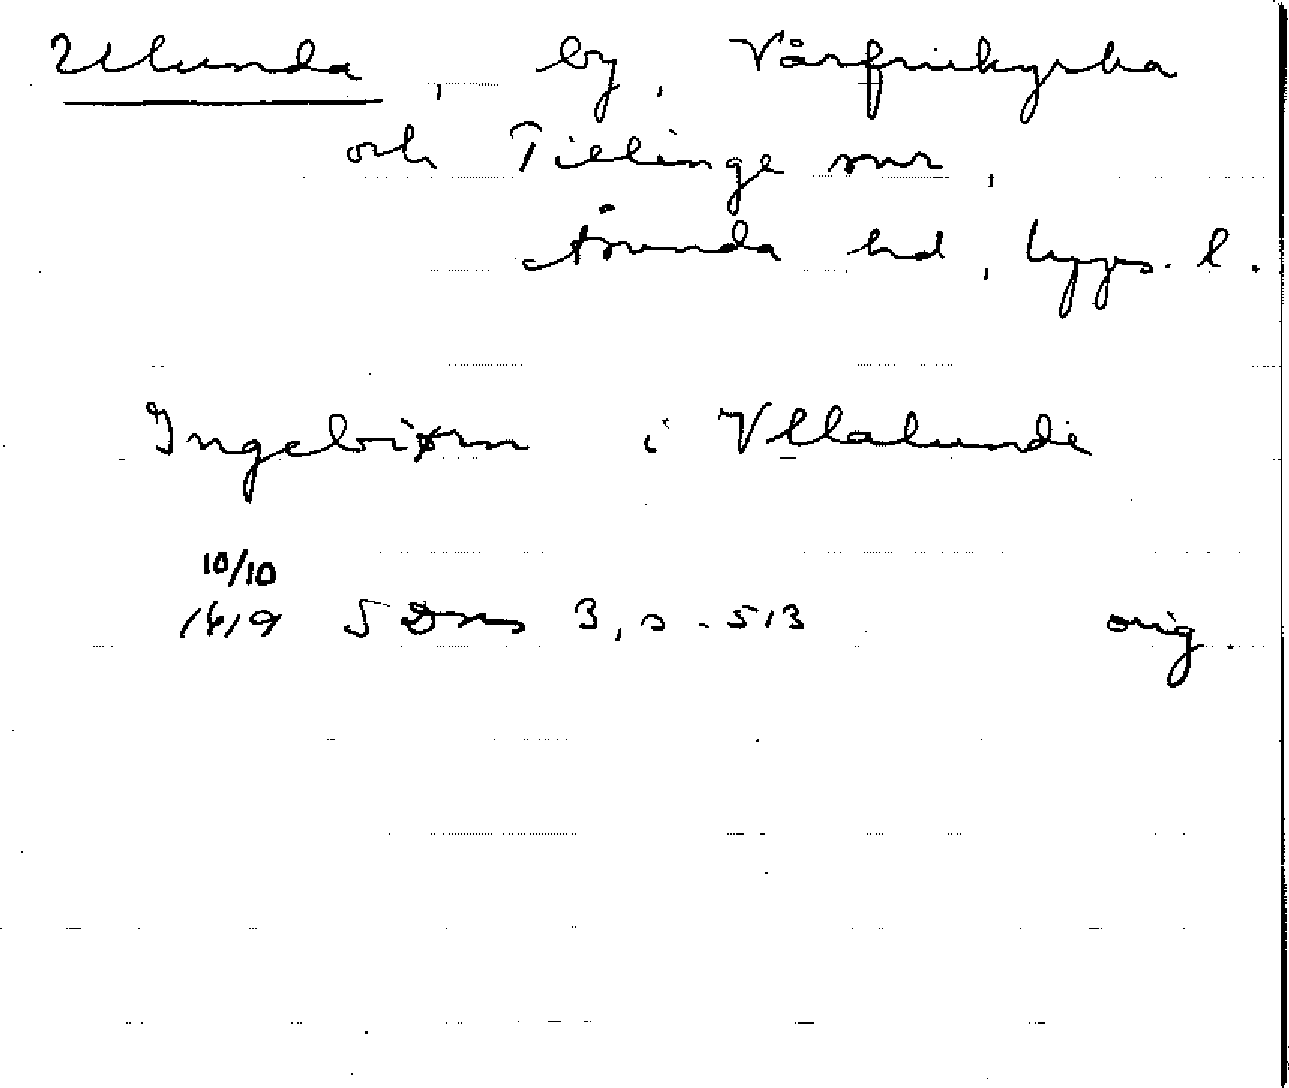 Ulunda, by, Vårfrukyrka
och Tillinge snr,
Åsunda hd, Upps. l.
Ingebiørn i Vllalunde
10/10
1419 SDns 3, s. 513 orig.